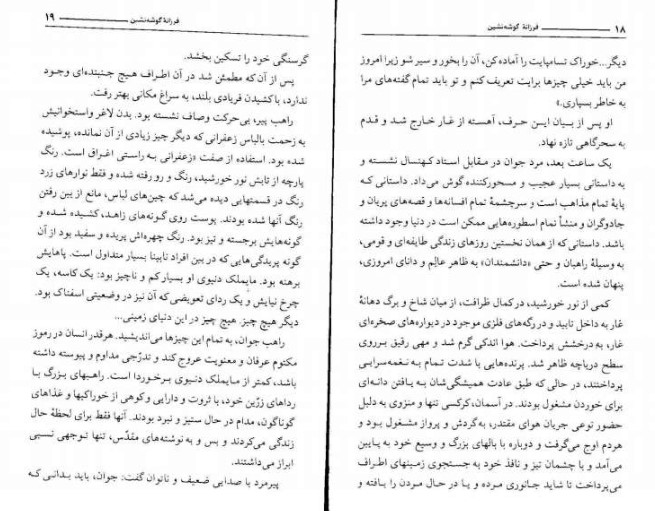 ۱۸ فرزانهٔ گوشه‌نشین
دیگر...خوراک تسامپایت را آماده کن، آن را بخور و سیر شو زیرا امروز
من باید خیلی چیزها برایت تعریف کنم و تو باید تمام گفته‌های مرا
به خاطر بسپاری.»
او پس از بیان ایـن حرف، آهسته از غار خارج شد و قدم
به سحرگاهی تازه نهاد.
یک ساعت بعد، مرد جوان در مقابل استاد کهنسال نشسته و
به داستانی بسیار عجیب و مسحورکننده گوش می‌داد. داستانی که
پایهٔ تمام مذاهب است و سرچشمهٔ تمام افسانه‌ها و قصه‌های پریان و
جادوگران و منشأ تمام اسطوره‌هایی ممکن است در دنیا وجود داشته
باشد. داستانی که از همان نخستین روزهای زندگی طایفه‌ای و قومی،
به وسیلهٔ راهبان و حتی «دانشمندان» به ظاهر عالِم و دانای امروزی،
پنهان شده است.
کمی از نور خورشید، در کمال ظرافت، از میان شاخ و برگ دهانهٔ
غار به داخل تابید و در رگه‌های فلزی موجود در دیواره‌های صخره‌ای
غار، به درخشش پرداخت. هوا اندکی گرم شد و مهی رقیق بر روی
سطح دریاچه ظاهر شد. پرنده‌هایی با شدت تمام به نغمه‌سرایی
پرداختند، در حالی که طبق عادت همیشگی‌شان به یافتن دانه‌ای
برای خوردن مشغول بودند. در آسمان، کرکسی تنها و منزوی به دلیل
حضور نوعی جریان هوای مقتدر، به گردش و پرواز مشغول بـود و
هردم اوج می‌گرفت و دوباره با بالهای بزرگ و وسیع خود به پایین
می‌آمد و با چشمان تیز و نافذ خود به جستجوی زمینهای اطراف
می‌پرداخت تا شاید جانوری مرده و یـا در حال مردن را یافته و
فرزانهٔ گوشه‌نشین ۱۹
گرسنگی خود را تسکین بخشد.
پس از آن که مطمئن شد در آن اطراف هیچ جنبنده‌ای وجود
ندارد، با کشیدن فریادی بلند، به سراغ مکانی بهتر رفت.
راهب پیر، بی‌حرکت وصاف نشسته بود. بدن لاغر واستخوانیش
به زحمت بالباس زعفرانی که دیگر چیز زیادی از آن نمانده، پوشیده
شده بود. استفاده از صفت «زعفرانی به راستی اغراق است. رنگ
پارچه از تابش نور خورشید، رنگ و رو رفته شده و فقط نوارهای زرد
رنگ در قسمتهایی دیده می‌شد که چین‌های لباس، مانع از بین رفتن
رنگ آنها شده بودند. پوست روی گونه‌های زاهد، کشیده شده و
گونه‌هایش برجسته و تیز بود. رنگ چهره‌اش پریده و سفید بود از آن
گونه پریدگی‌هایی که در بین افراد نابینا بسیار متداول است. پاهایش
برهنه بود. مایملک دنیوی او بسیار کم و ناچیز بود: یک کاسه، یک
چرخ نیایش و یک ردای تعویضی که آن نیز در وضعیتی اسفناک بود.
دیگر هیچ چیز. هیچ چیز در این دنیای زمینی...
راهب جوان، به تمام این چیزها می‌اندیشید. هرقدر انسان در رموز
مکتوم عرفان و معنویت عروج کند و تدرّجی مداوم و پیوسته داشته
باشد، کمتر از مایملک دنیوی برخوردا است. راهبهای بزرگ با
رداهای زرّین خود، با ثروت و دارایی وکوهی از خوراکیها و غذاهای
گوناگون، مدام در حال ستیز و نبرد بودند. آنها فقط برای لحظهٔ حال
زندگی می‌کردند و بس و به نوشته‌های مقدّس، تنها توجهی نسبی
ابراز می‌داشتند.
پیرمرد با صدایی ضعیف و ناتوان گفت: جوان، باید بدانی که